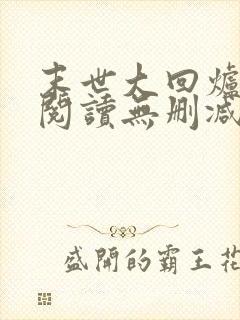 末世大回爐
閱讀無刪減
盛開的霸王花